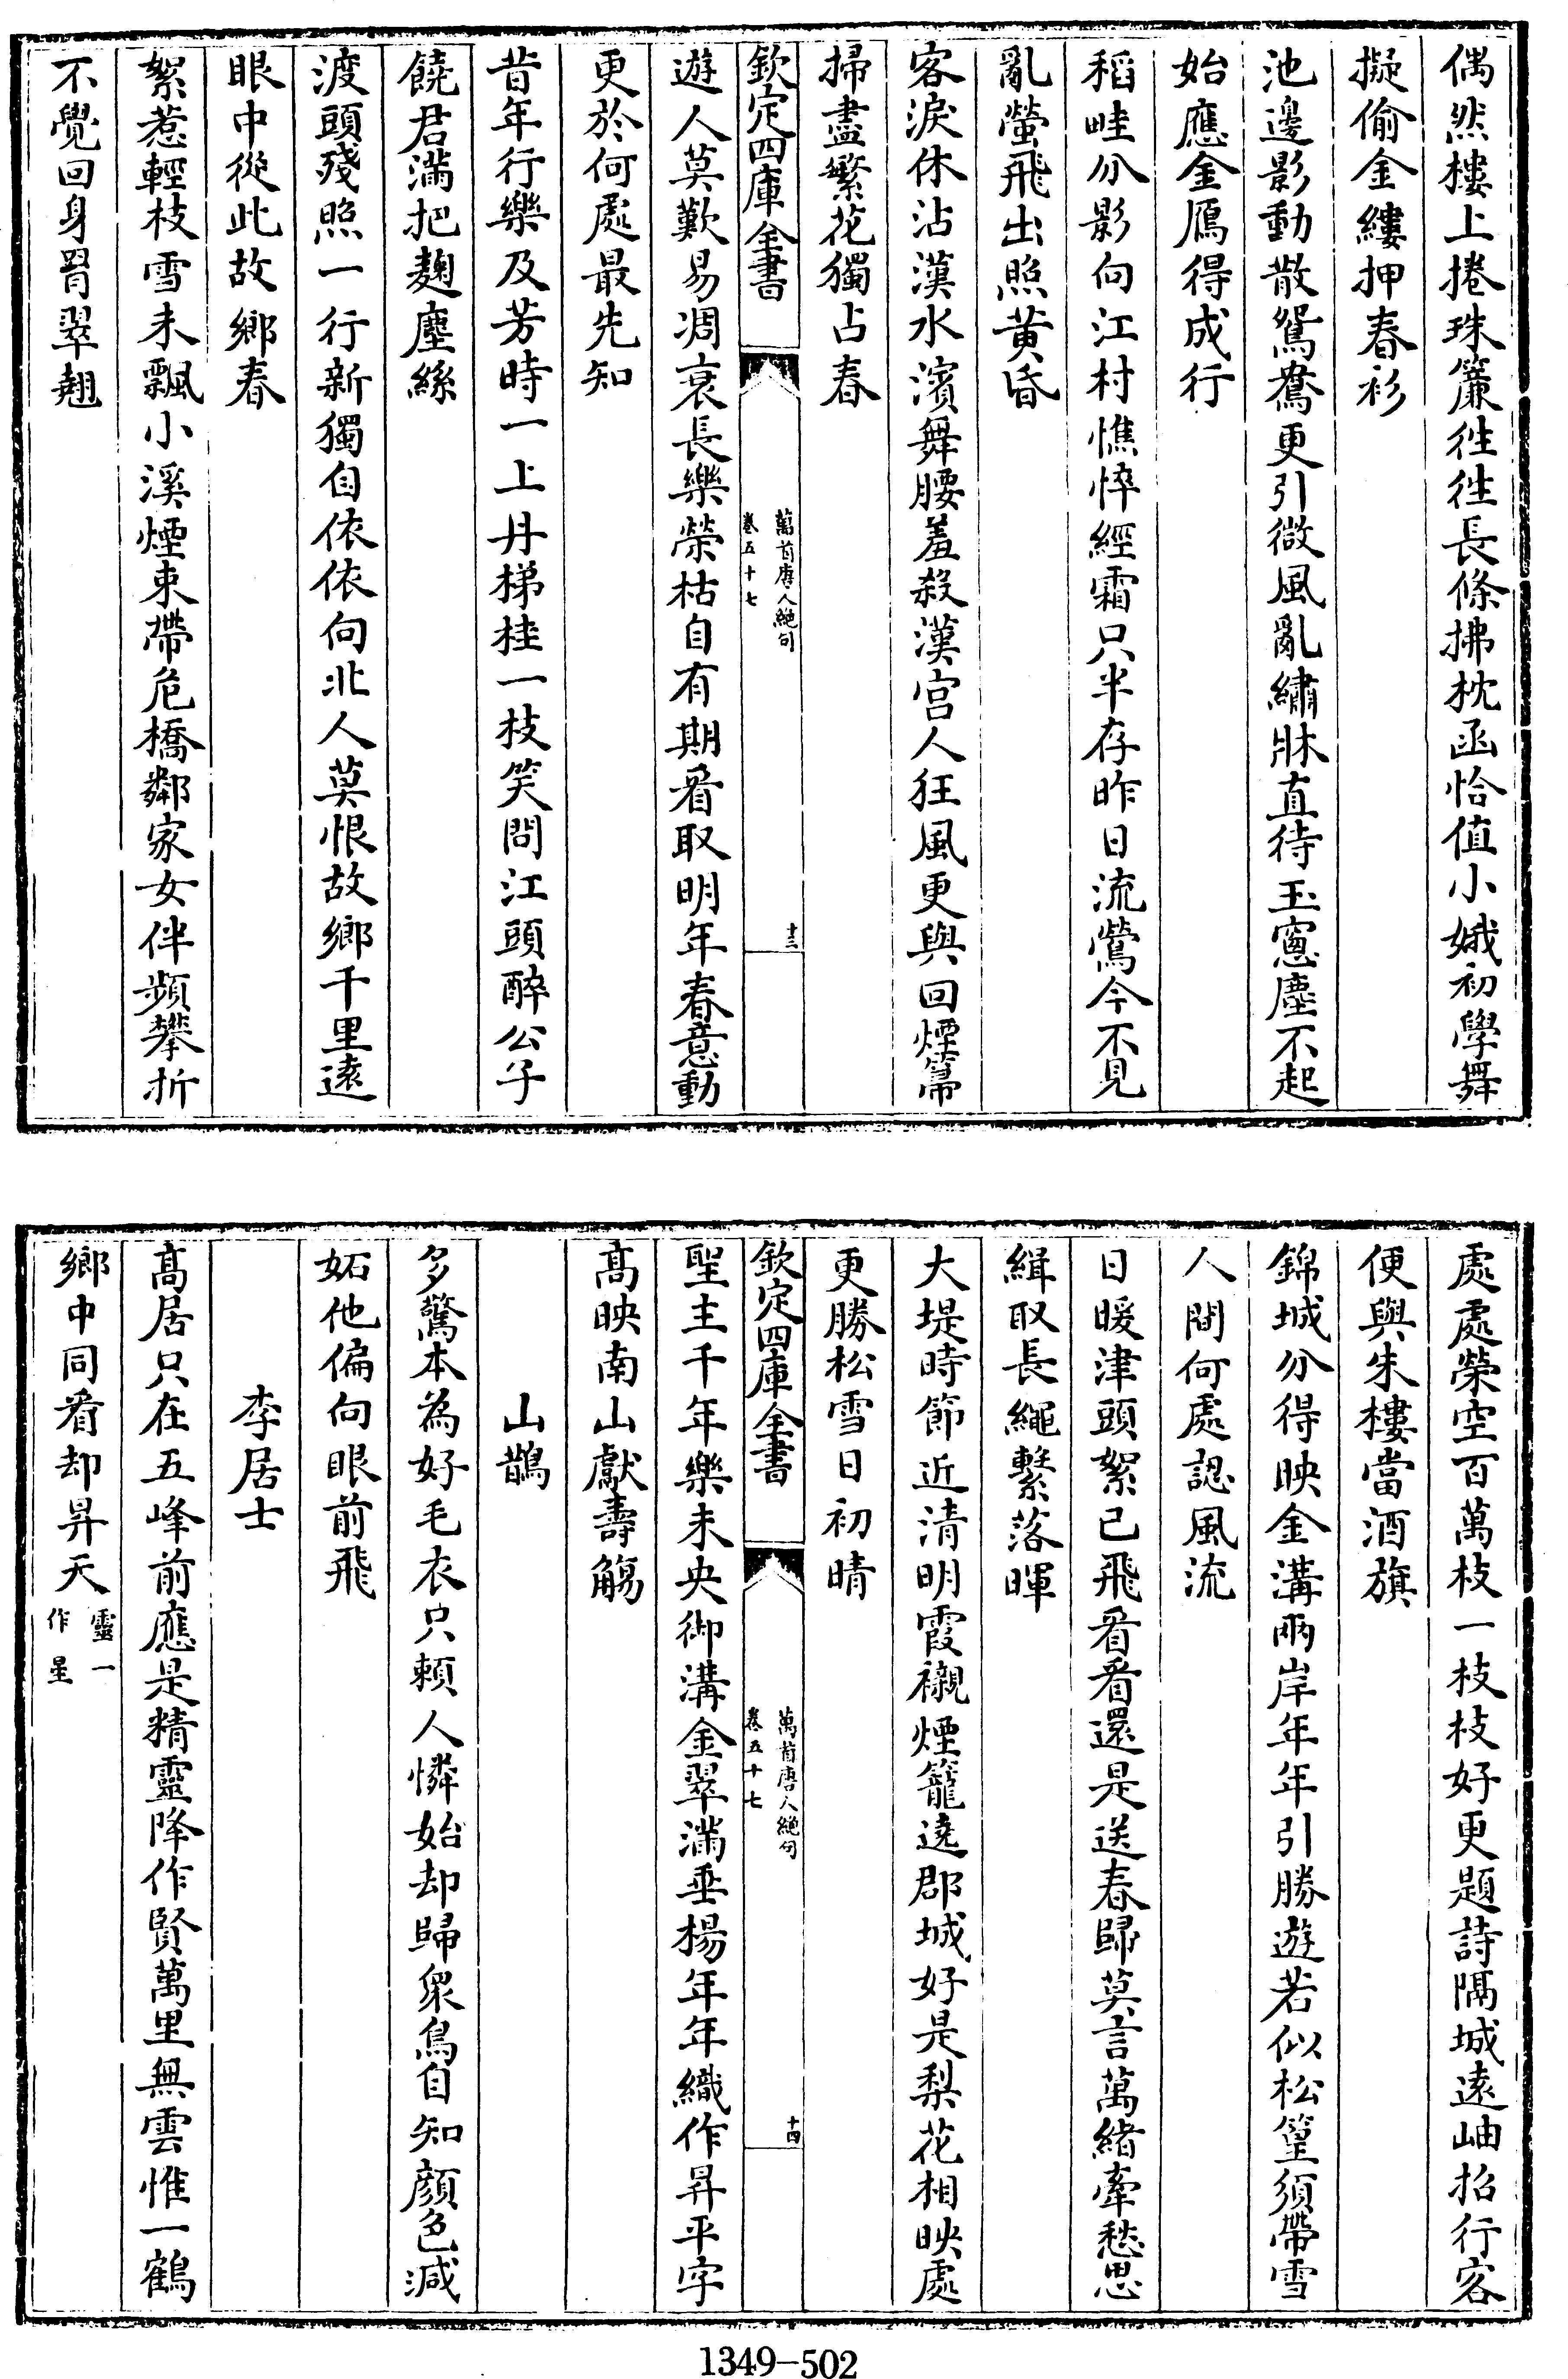 偶然樓上捲珠簾徃徃長條拂枕函恰值小娥初學舞
擬偷金縷押春衫
池邊影動散鴛鴦更引微風亂繡牀直待玉窻塵不起
始應金鴈得成行
稻畦分影向江村憔悴經霜只半存昨日流鶯今不見
亂螢飛出照黄昏
客淚休沾漢水濱舞腰羞殺漢宫人狂風更與回煙箒
掃盡繁花獨占春
欽定四庫全書
萬首唐人絶句
卷五十七
十三
遊人莫歎易凋衰長樂榮枯自有期看取明年春意動
更於何處最先知
昔年行樂及芳時一上丹梯桂一枝笑問江頭醉公子
饒君滿把麴塵絲
渡頭殘照一行新獨自依依向北人莫恨故鄉千里遠
眼中從此故鄉春
絮惹輕枝雪未飄小溪煙束帶危橋鄰家女伴頻攀折
不覺回身罥翠翹
處處榮空百萬枝一枝枝好更題詩隔城遠岫招行客
便與朱樓當酒旗
錦城分得映金溝兩岸年年引勝遊若似松篁須帶雪
人間何處認風流
日暖津頭絮已飛看看還是送春歸莫言萬緒牽愁思
緝取長繩繫落暉
大堤時節近清明霞襯煙籠遶郡城好是梨花相映處
更勝松雪日初晴
欽定四庫全書
萬首唐人絶句
卷五十七
十四
聖主千年樂未央御溝金翠滿垂楊年年織作昇平字
髙映南山獻壽觴
山鵲
多驚本為好毛衣只賴人憐始却歸衆鳥自知顔色减
妬他偏向眼前飛
李居士
髙居只在五峰前應是精靈降作賢萬里無雲惟一鶴
鄉中同看却昇天
靈一
作星
1349-502